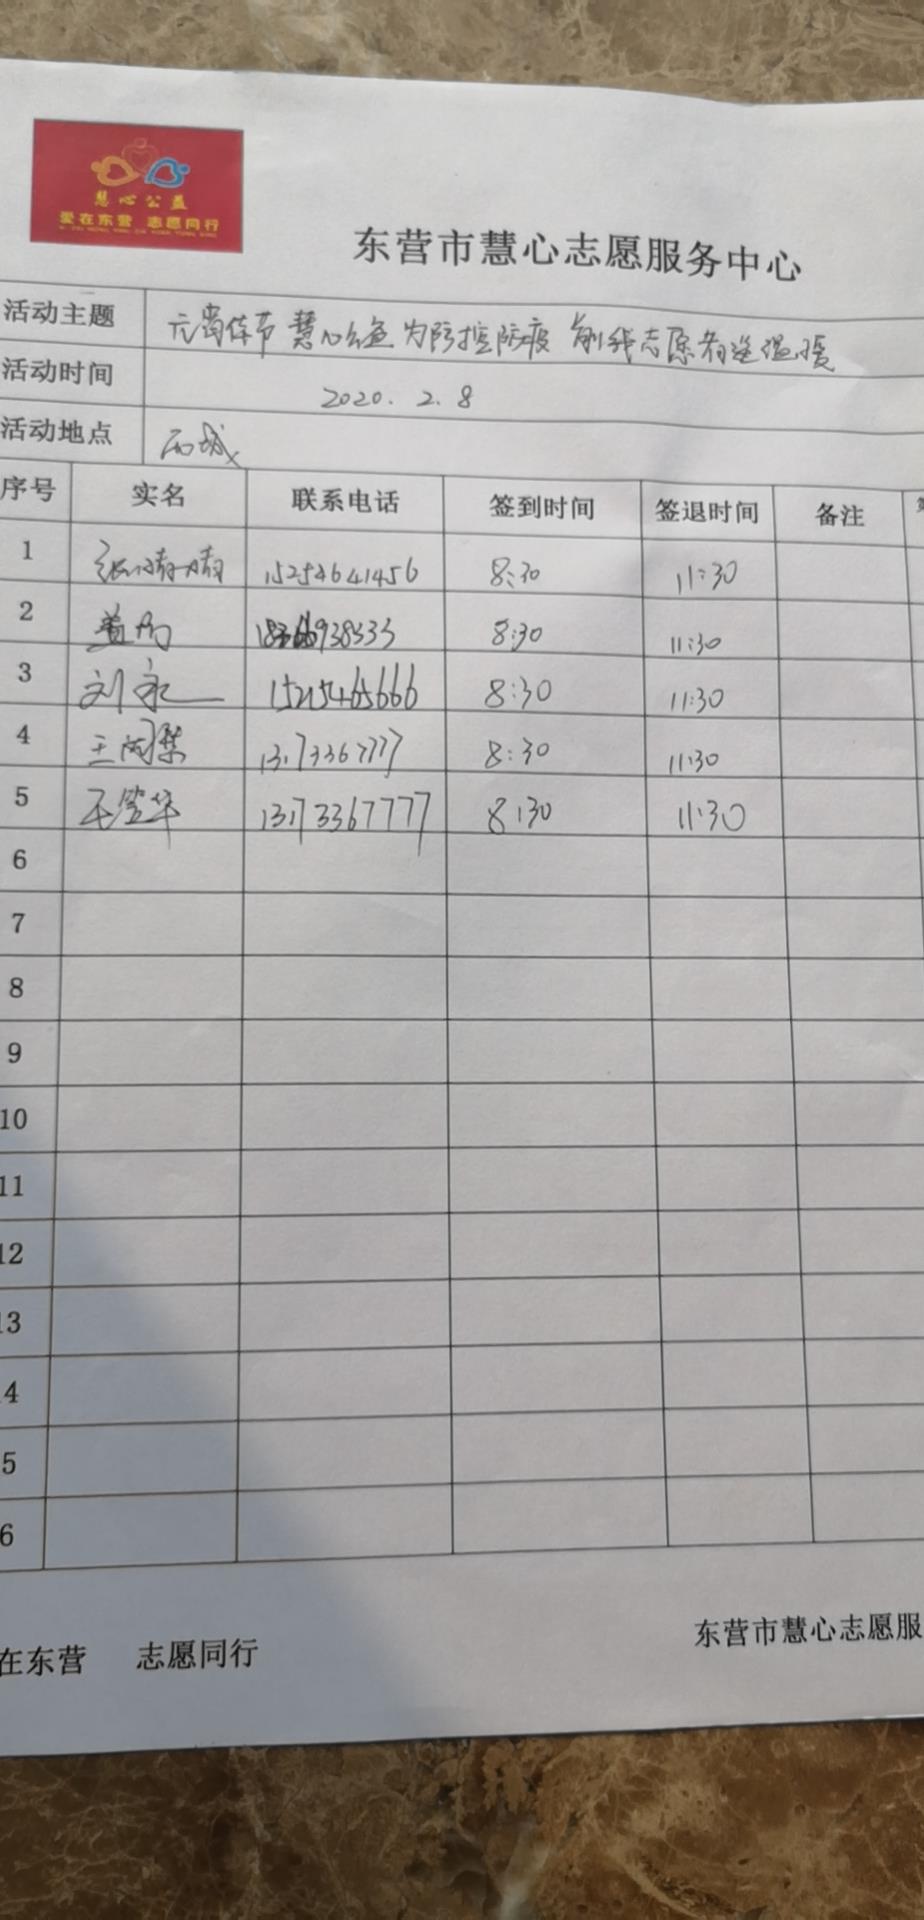 慧心公益
爱在东营 志愿同行
东营市慧心志愿服务中心
活动主题 元宵佳节 慧心公益 为防控防疫 前线志愿者送温暖
活动时间 2020.2.8
活动地点 西城
序号 实名 联系电话 签到时间 签退时间 备注
1 张晴晴 15254641456 8:30 11:30
2 8:30 11:30
3 刘永一 15215465666 8:30 11:30
4 王 13173367777 8:30 11:30
5 华 13173367777 8:30 11:30
6
7
8
9
10
11
12
13
14
5
6
在东营 志愿同行
东营市慧心志愿服